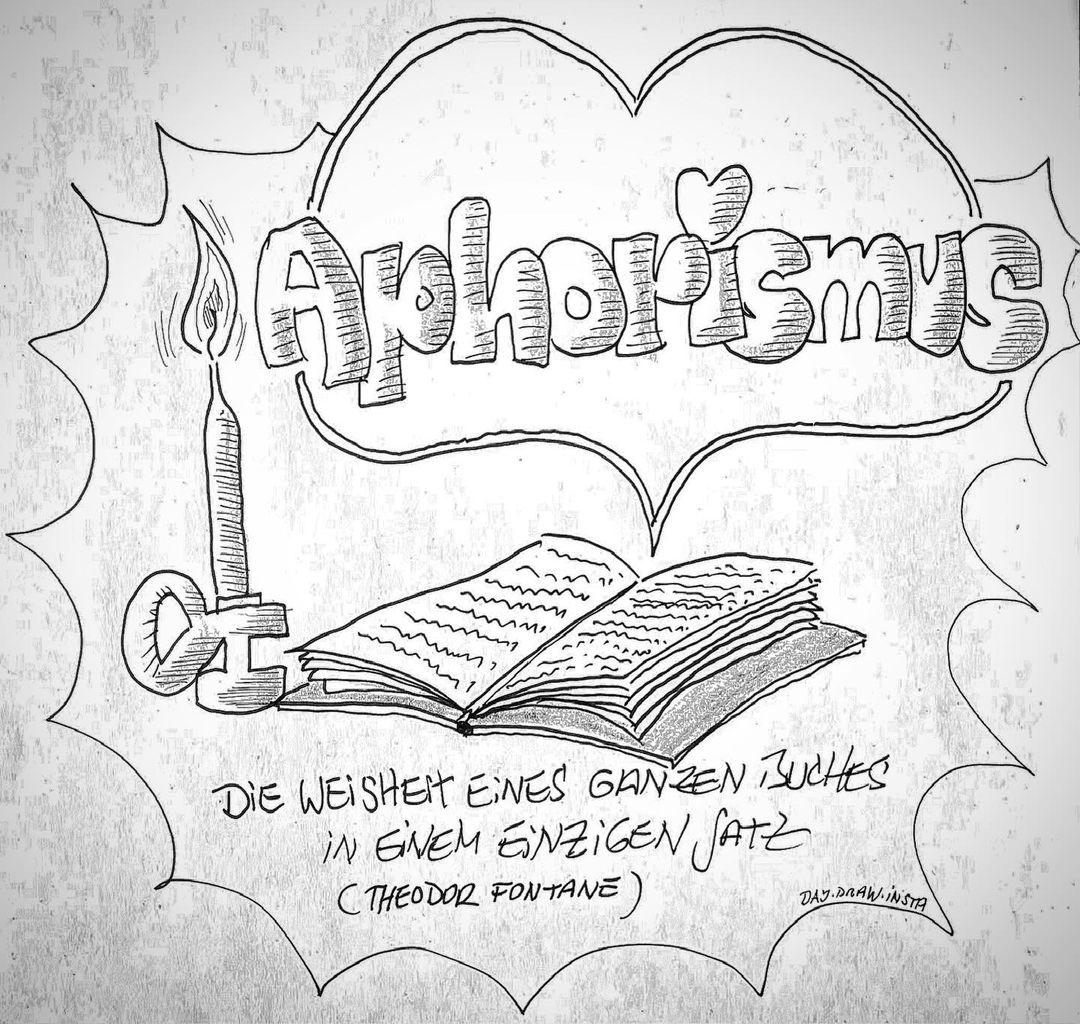 Aphorismus
DIE WEISHEIT EINES GANZEN BUCHES
IN EINEM EINZIGEN SATZ
(THEODOR FONTANE)
DAY.DRAW.INSTA